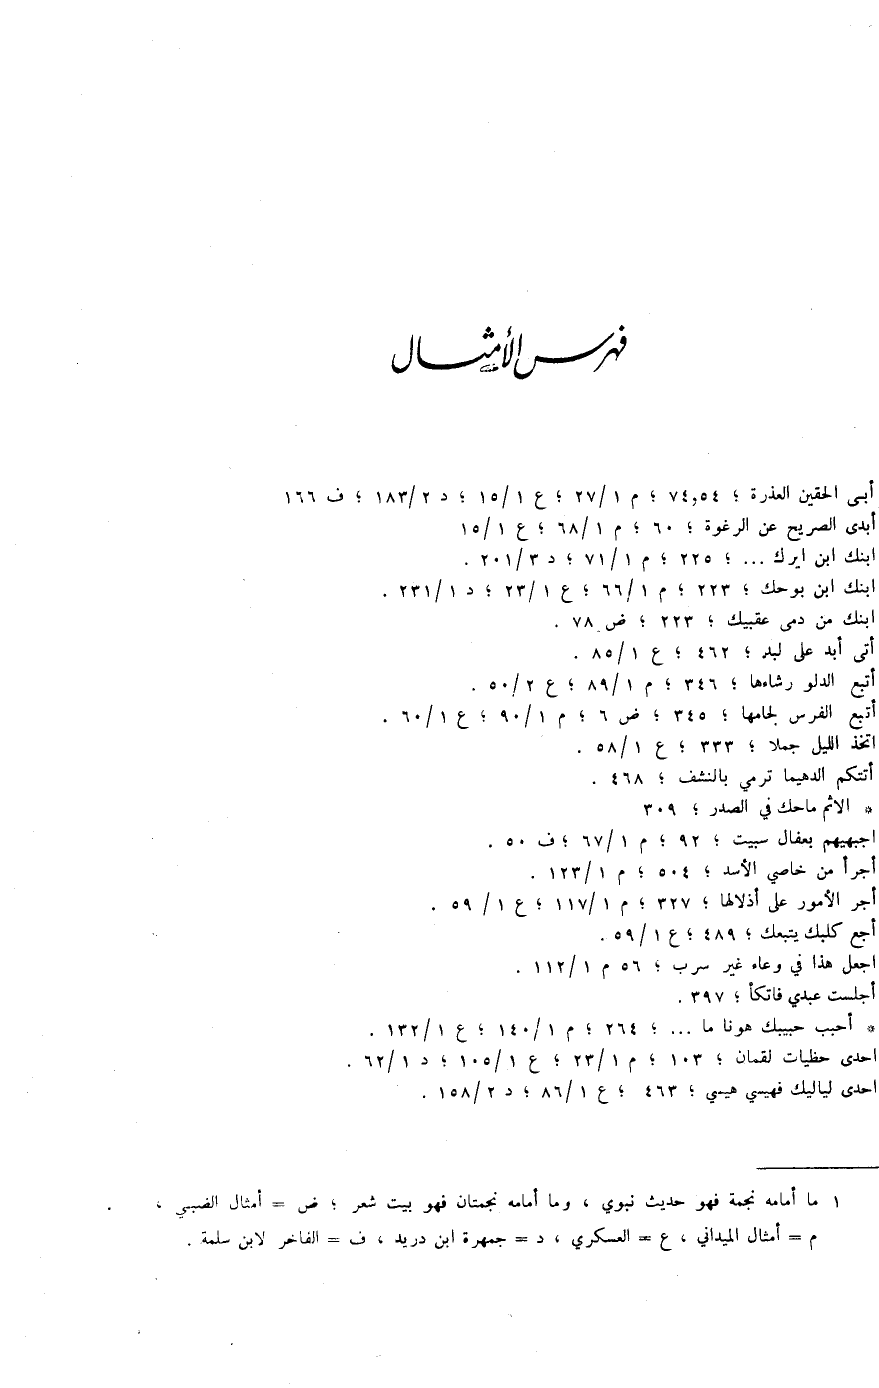 فهرس الأمثال
أبى الحقين العذرة ؛ ٧٤,٥٤ ؛ م ٢٧/١ ؛ ع ١٥/١ ؛ د ١٨٣/٢ ؛ ف ١٦٦
أبدى الصريح عن الرغوة ؛ ٦٠ ؛ م ٦٨/١ ؛ ع ١٥/١
ابنك ابن ايرك ... ؛ ٢٢٥ ؛ م ٧١/١ ؛ د ٢٠١/٣ .
ابنك ابن بوحك ؛ ٢٢٣ ؛ م ٦٦/١ ؛ ع ٢٣/١ ؛ د ٢٣١/١ .
ابنك من دمى عقبيك ؛ ٢٢٣ ؛ ض ٧٨ .
أتى أبد على لبد ؛ ٤٦٢ ؛ ع ٨٥/١ .
أتبع الدلو رشاءها ؛ ٣٤٦ ؛ م ٨٩/١ ؛ ع ٥٠/٢ .
أتبع الفرس لجامها ؛ ٣٤٥ ؛ ض ٦ ؛ م ٩٠/١ ؛ ع ٦٠/١ .
اتخذ الليل جملا ؛ ٣٣٣ ؛ ع ٥٨/١ .
أتتكم الدهيما ترمي بالنشف ؛ ٤٦٨ .
* الاثم ماحك في الصدر ؛ ٣٠٩
اجبهيهم بعفال سبيت ؛ ٩٢ ؛ م ٦٧/١ ؛ ف ٥٠ .
أجرأ من خاصي الأسد ؛ ٥٠٤ ؛ م ١٢٣/١ .
أجر الأمور على أذلالها ؛ ٣٢٧ ؛ م ١١٧/١ ؛ ع ١ / ٥٩ .
أجع كلبك يتبعك ؛ ٤٨٩ ؛ ع ٥٩/١ .
اجعل هذا في وعاء غير سرب ؛ ٥٦ م ١١٢/١ .
أجلست عبدي فاتكأ ؛ ٣٩٧ .
* أحبب حبيبك هونا ما ... ؛ ٢٦٤ ؛ م ١٤٠/١ ؛ ع ١٣٢/١ .
احدى حظيات لقمان ؛ ١٠٣ ؛ م ٢٣/١ ؛ ع ١٠٥/١ ؛ د ٦٢/١ .
احدى لياليك فهيسي هيسي ؛ ٤٦٣ ؛ ع ٨٦/١ ؛ د ١٥٨/٢ .
١ ما أمامه نجمة فهو حديث نبوي ، وما أمامه نجمتان فهو بيت شعر ؛ ض = أمثال الضبي ،
م = أمثال الميداني ، ع = العسكري ، د = جمهرة ابن دريد ، ف = الفاخر لابن سلمة .